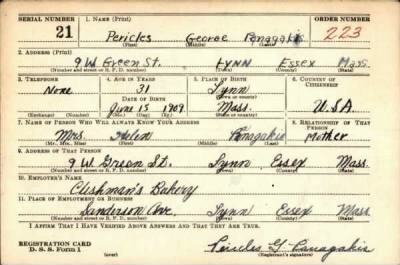 SERIAL NUMBER 1. NAME (Print) ORDER NUMBER
21 Pericles George Panagakis 223
(First) (Middle) (Last)
2. ADDRESS (Print)
9 W Green St. Lynn Essex Mass.
(Number and street or R. F. D. number) (Town) (County) (State)
3. TELEPHONE 4. AGE IN YEARS 5. PLACE OF BIRTH 6. COUNTRY OF CITIZENSHIP
None 31 Lynn
DATE OF BIRTH
June 15 1909 Mass. U.S.A
(Exchange) (Number) (Mo.) (Day) (Yr.) (State or country)
7. NAME OF PERSON WHO WILL ALWAYS KNOW YOUR ADDRESS 8. RELATIONSHIP OF THAT PERSON
Mrs. Helen Panagakis Mother
(Mr., Mrs., Miss) (First) (Middle) (Last)
9. ADDRESS OF THAT PERSON
9 W. Green St. Lynn, Essex Mass.
(Number and street or R. F. D. number) (Town) (County) (State)
10. EMPLOYER'S NAME
Cushman's Bakery
11. PLACE OF EMPLOYMENT OR BUSINESS
Sanderson Ave. Lynn Essex Mass
(Number and street or R. F. D. number) (Town) (County) (State)
I AFFIRM THAT I HAVE VERIFIED ABOVE ANSWERS AND THAT THEY ARE TRUE.
REGISTRATION CARD
D. S. S. Form 1 (over) Pericles G. Panagakis
(Registrant's signature)